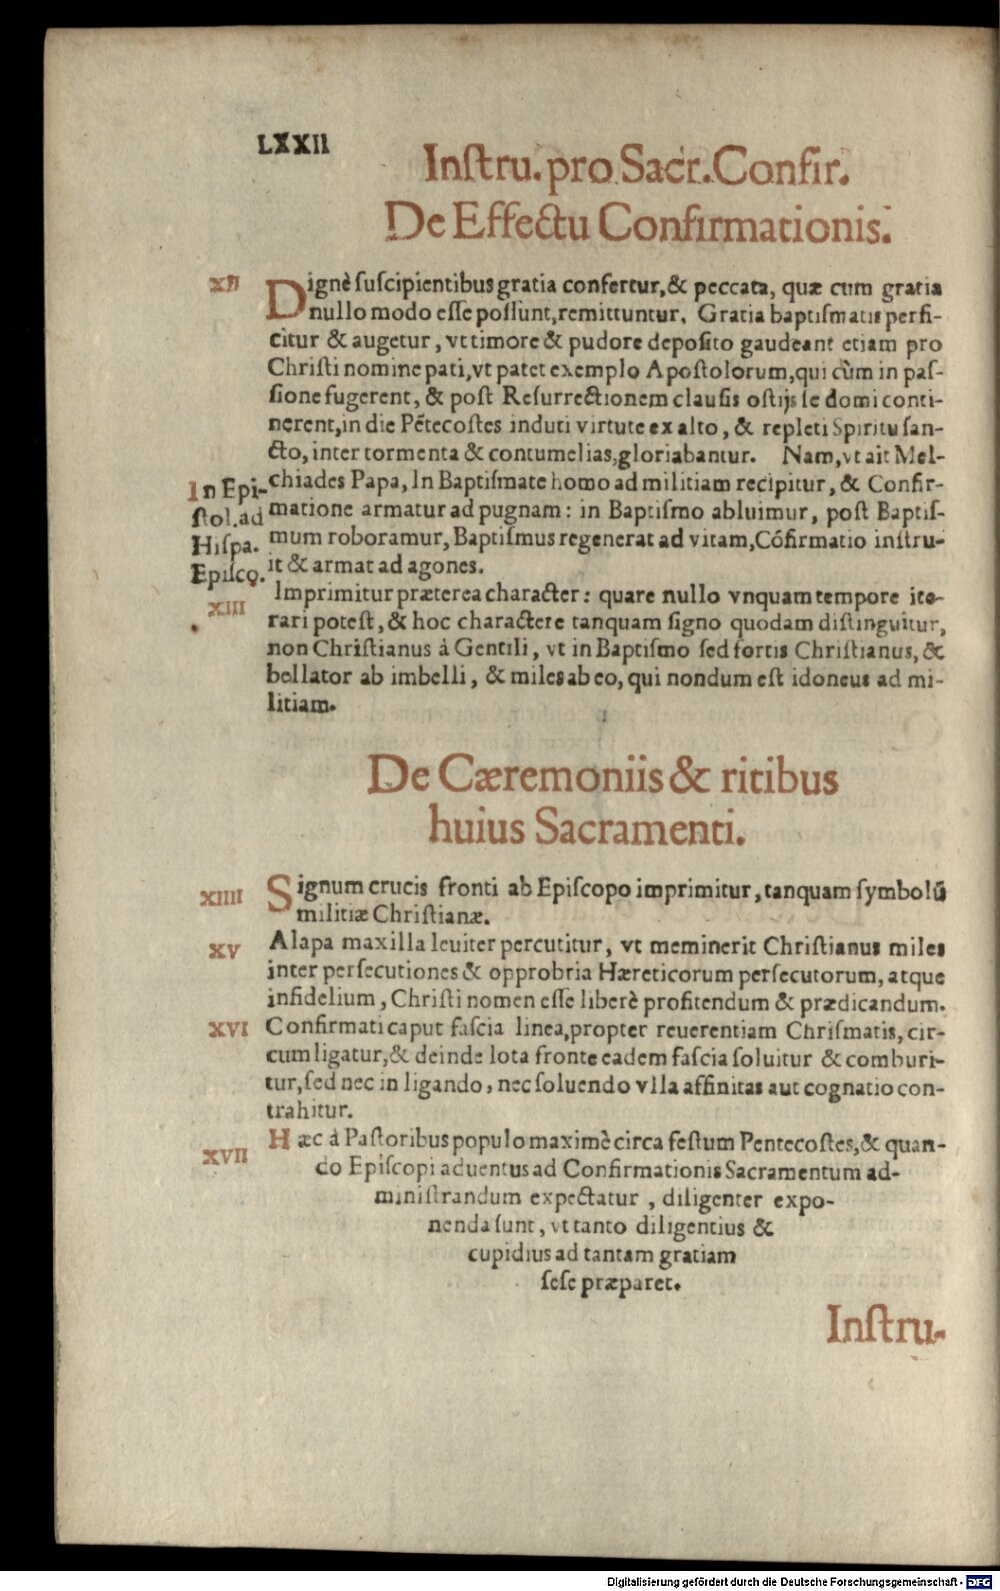 LXXII
Instru. pro Sacr. Confir.
De Effectu Confirmationis.
XII
Dignè suscipientibus gratia confertur, & peccata, quæ cum gratia
nullo modo esse possunt, remittuntur. Gratia baptismatis perfi-
citur & augetur, vt timore & pudore deposito gaudeant etiam pro
Christi nomine pati, vt patet exemplo Apostolorum, qui cùm in pas-
sione fugerent, & post Resurrectionem clausis ostijs se domi conti-
nerent, in die Pẽtecostes induti virtute ex alto, & repleti Spiritu san-
cto, inter tormenta & contumelias, gloriabantur. Nam, vt ait Mel-
chiades Papa, In Baptismate homo ad militiam recipitur, & Confir-
matione armatur ad pugnam: in Baptismo abluimur, post Baptis-
mum roboramur, Baptismus regenerat ad vitam, Cõfirmatio instru-
it & armat ad agones.
In Epi-
stol. ad
Hispa.
Episco.
XIII
Imprimitur præterea character: quare nullo vnquam tempore ite-
rari potest, & hoc charactere tanquam signo quodam distinguitur,
non Christianus à Gentili, vt in Baptismo sed fortis Christianus, &
bellator ab imbelli, & miles ab eo, qui nondum est idoneus ad mi-
litiam.
De Cæremoniis & ritibus
huius Sacramenti.
XIIII
Signum crucis fronti ab Episcopo imprimitur, tanquam symbolũ
militiæ Christianæ.
XV
Alapa maxilla leuiter percutitur, vt meminerit Christianus miles
inter persecutiones & opprobria Hæreticorum persecutorum, atque
infidelium, Christi nomen esse liberè profitendum & prædicandum.
XVI
Confirmati caput fascia linea, propter reuerentiam Chrismatis, cir-
cumligatur, & deinde lota fronte eadem fascia soluitur & comburi-
tur, sed nec in ligando, nec soluendo vlla affinitas aut cognatio con-
trahitur.
XVII
Hæc à Pastoribus populo maximè circa festum Pentecostes, & quan-
do Episcopi aduentus ad Confirmationis Sacramentum ad-
ministrandum expectatur, diligenter expo-
nenda sunt, vt tanto diligentius &
cupidius ad tantam gratiam
sese præparet.
Instru-
Digitalisierung gefördert durch die Deutsche Forschungsgemeinschaft - DFG